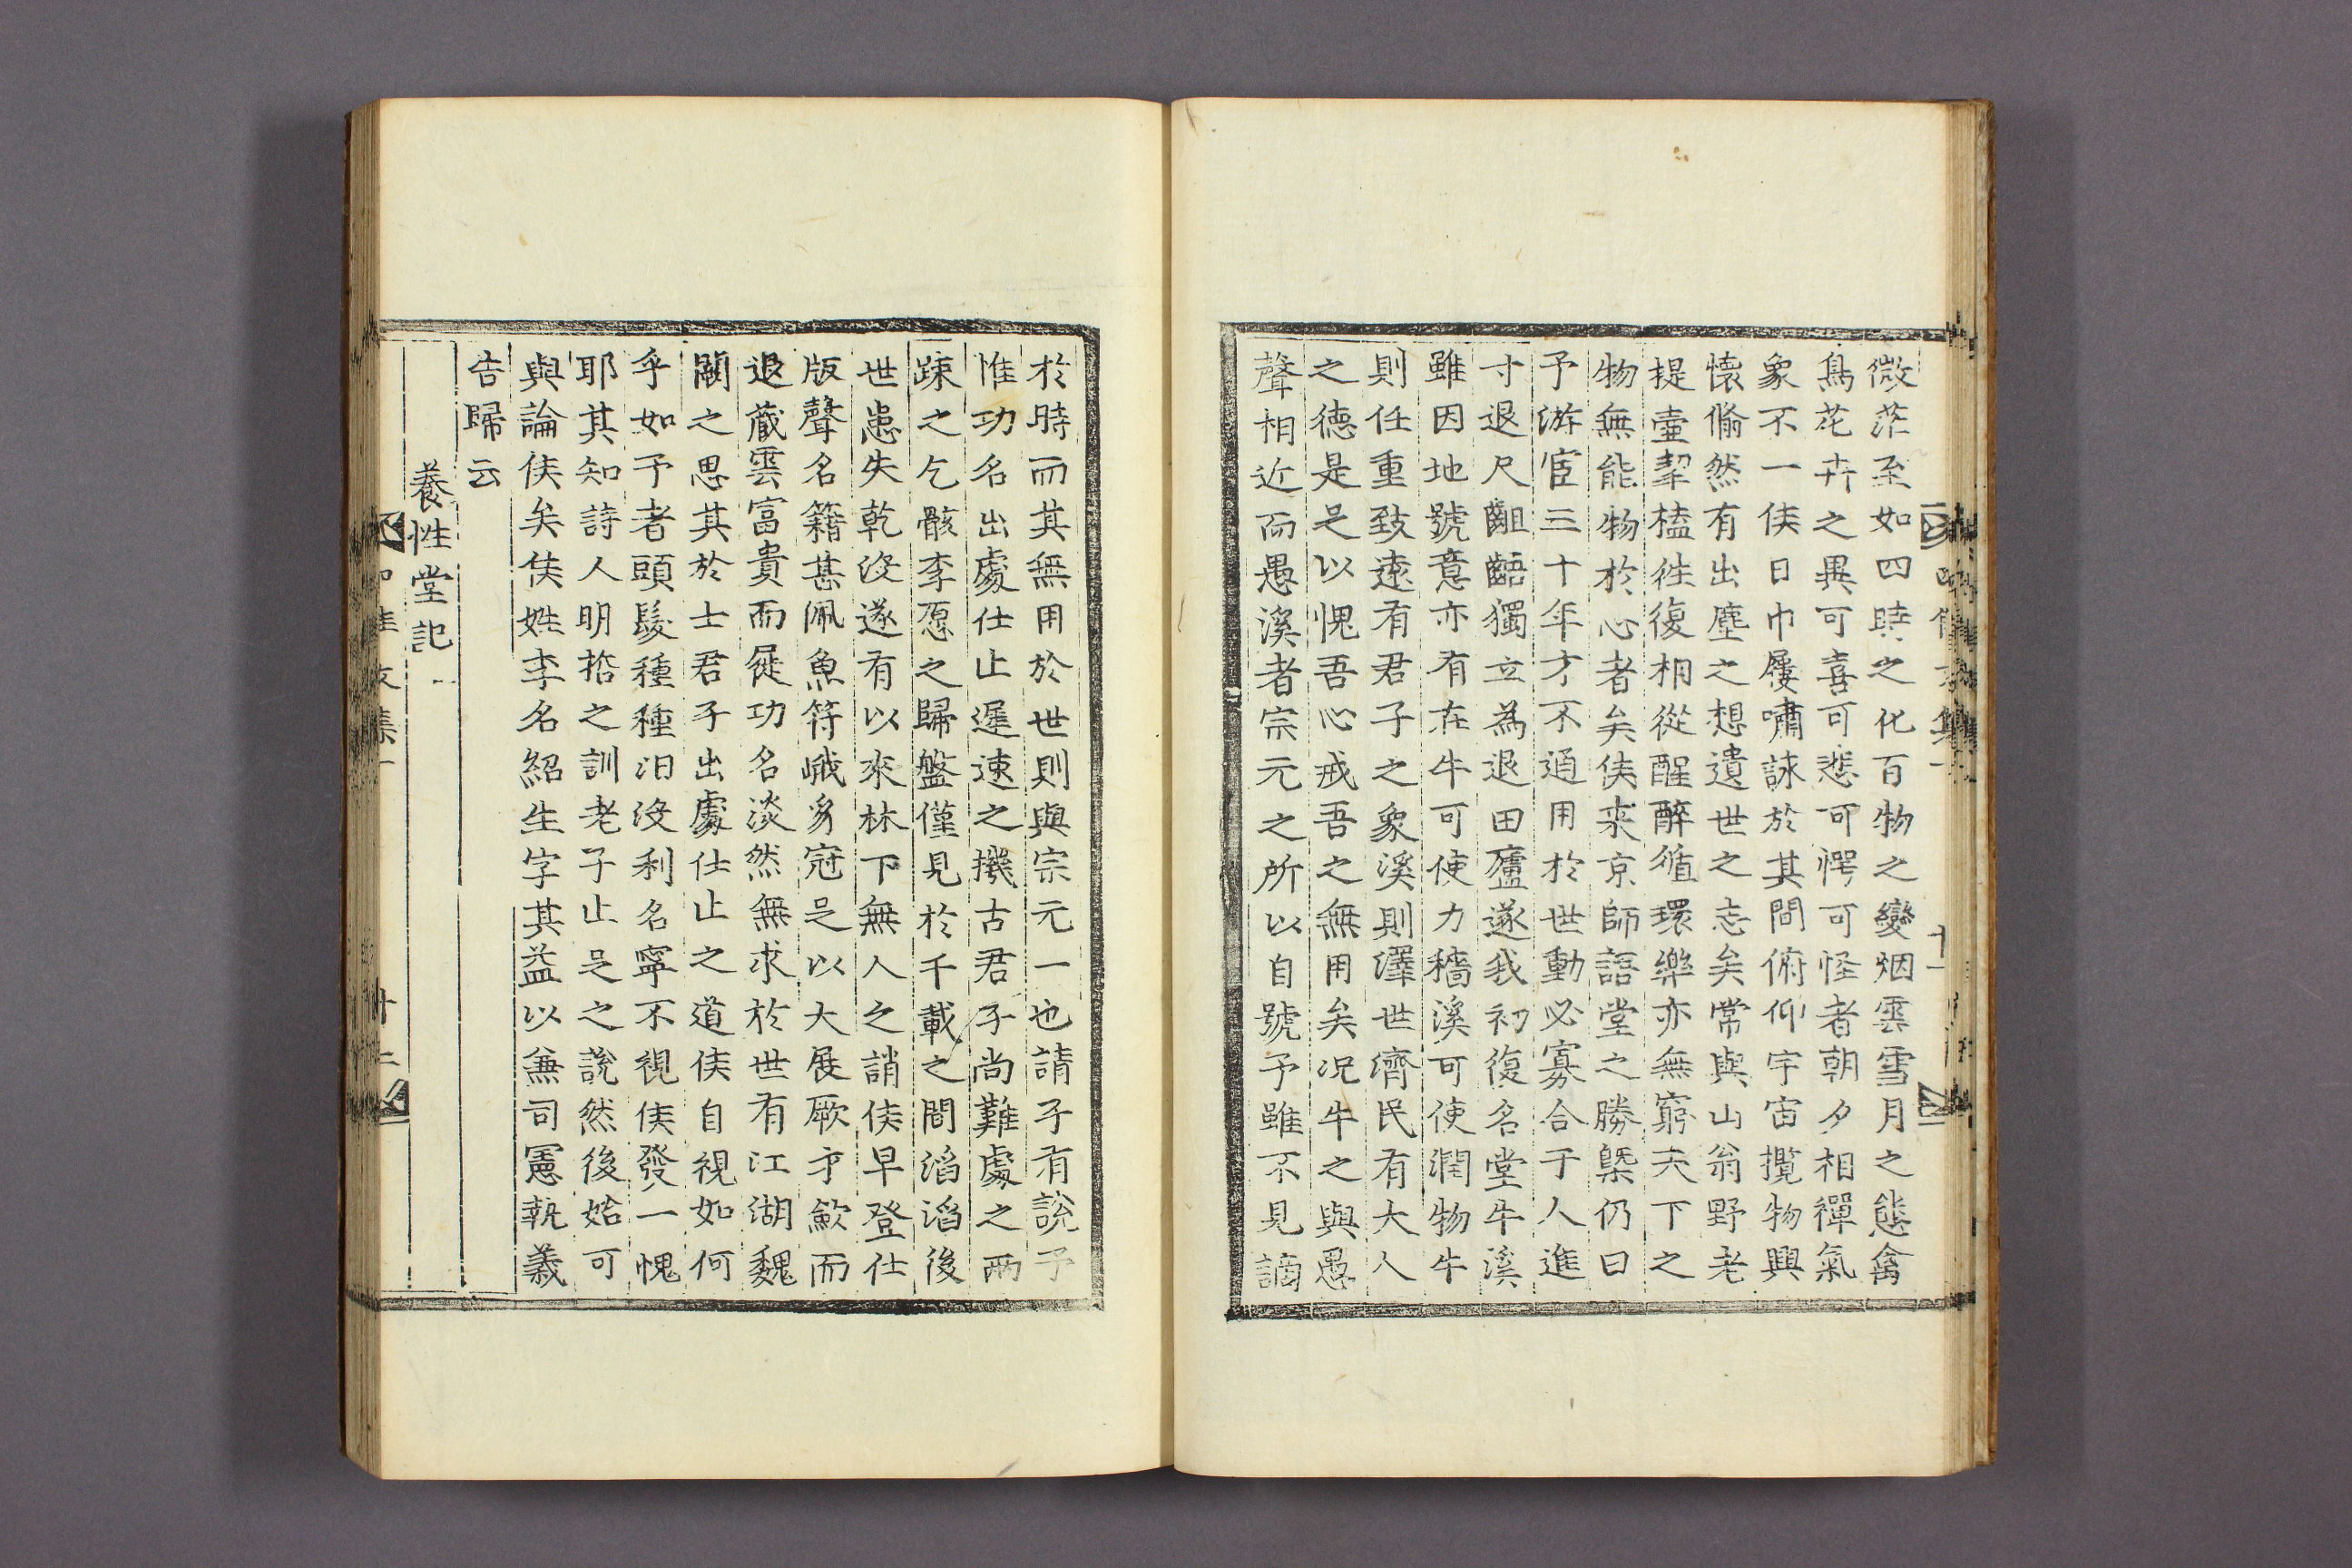 微茫至如四時之化百物之變烟雲雪月之態禽
鳥花卉之異可喜可悲可愕可怪者朝夕相禪氣
象不一侯日巾屨嘯詠於其間俯仰宇宙攬物興
懷翛然有出塵之想遺世之志矣常與山翁野老
提壷挈榼徃復相從醒醉循環樂亦無窮天下之
物無能物於心者矣侯来京師語堂之勝槩仍曰
予游宦三十年才不適用於世動必寡合于人進
寸退尺齟齬獨立為退田廬遂我初復名堂牛溪
雖因地號意亦有在牛可使力穡溪可使潤物牛
則任重致遠有君子之象溪則澤世濟民有大人
之德是足以愧吾心戒吾之無用矣况牛之與愚
聲相近而愚溪者宗元之所以自號予雖不見謫
於時而其無用於世則與宗元一也請子有說予
惟功名出處仕止遲速之機古君子尚難處之兩
踈之乞骸李愿之歸盤僅見於千載之間滔滔後
世患失乾沒遂有以來林下無人之誚侯早登仕
版聲名籍甚佩魚符峨豸冠足以大展厥才歛而
退藏雲富貴而屣功名淡然無求於世有江湖魏
闕之思其於士君子出處仕止之道侯自視如何
乎如予者頭髮種種汨沒利名寧不視侯發一愧
耶其知詩人明哲之訓老子止足之說然後始可
與論侯矣侯姓李名紹生字其益以兼司憲執義
告歸云
養性堂記